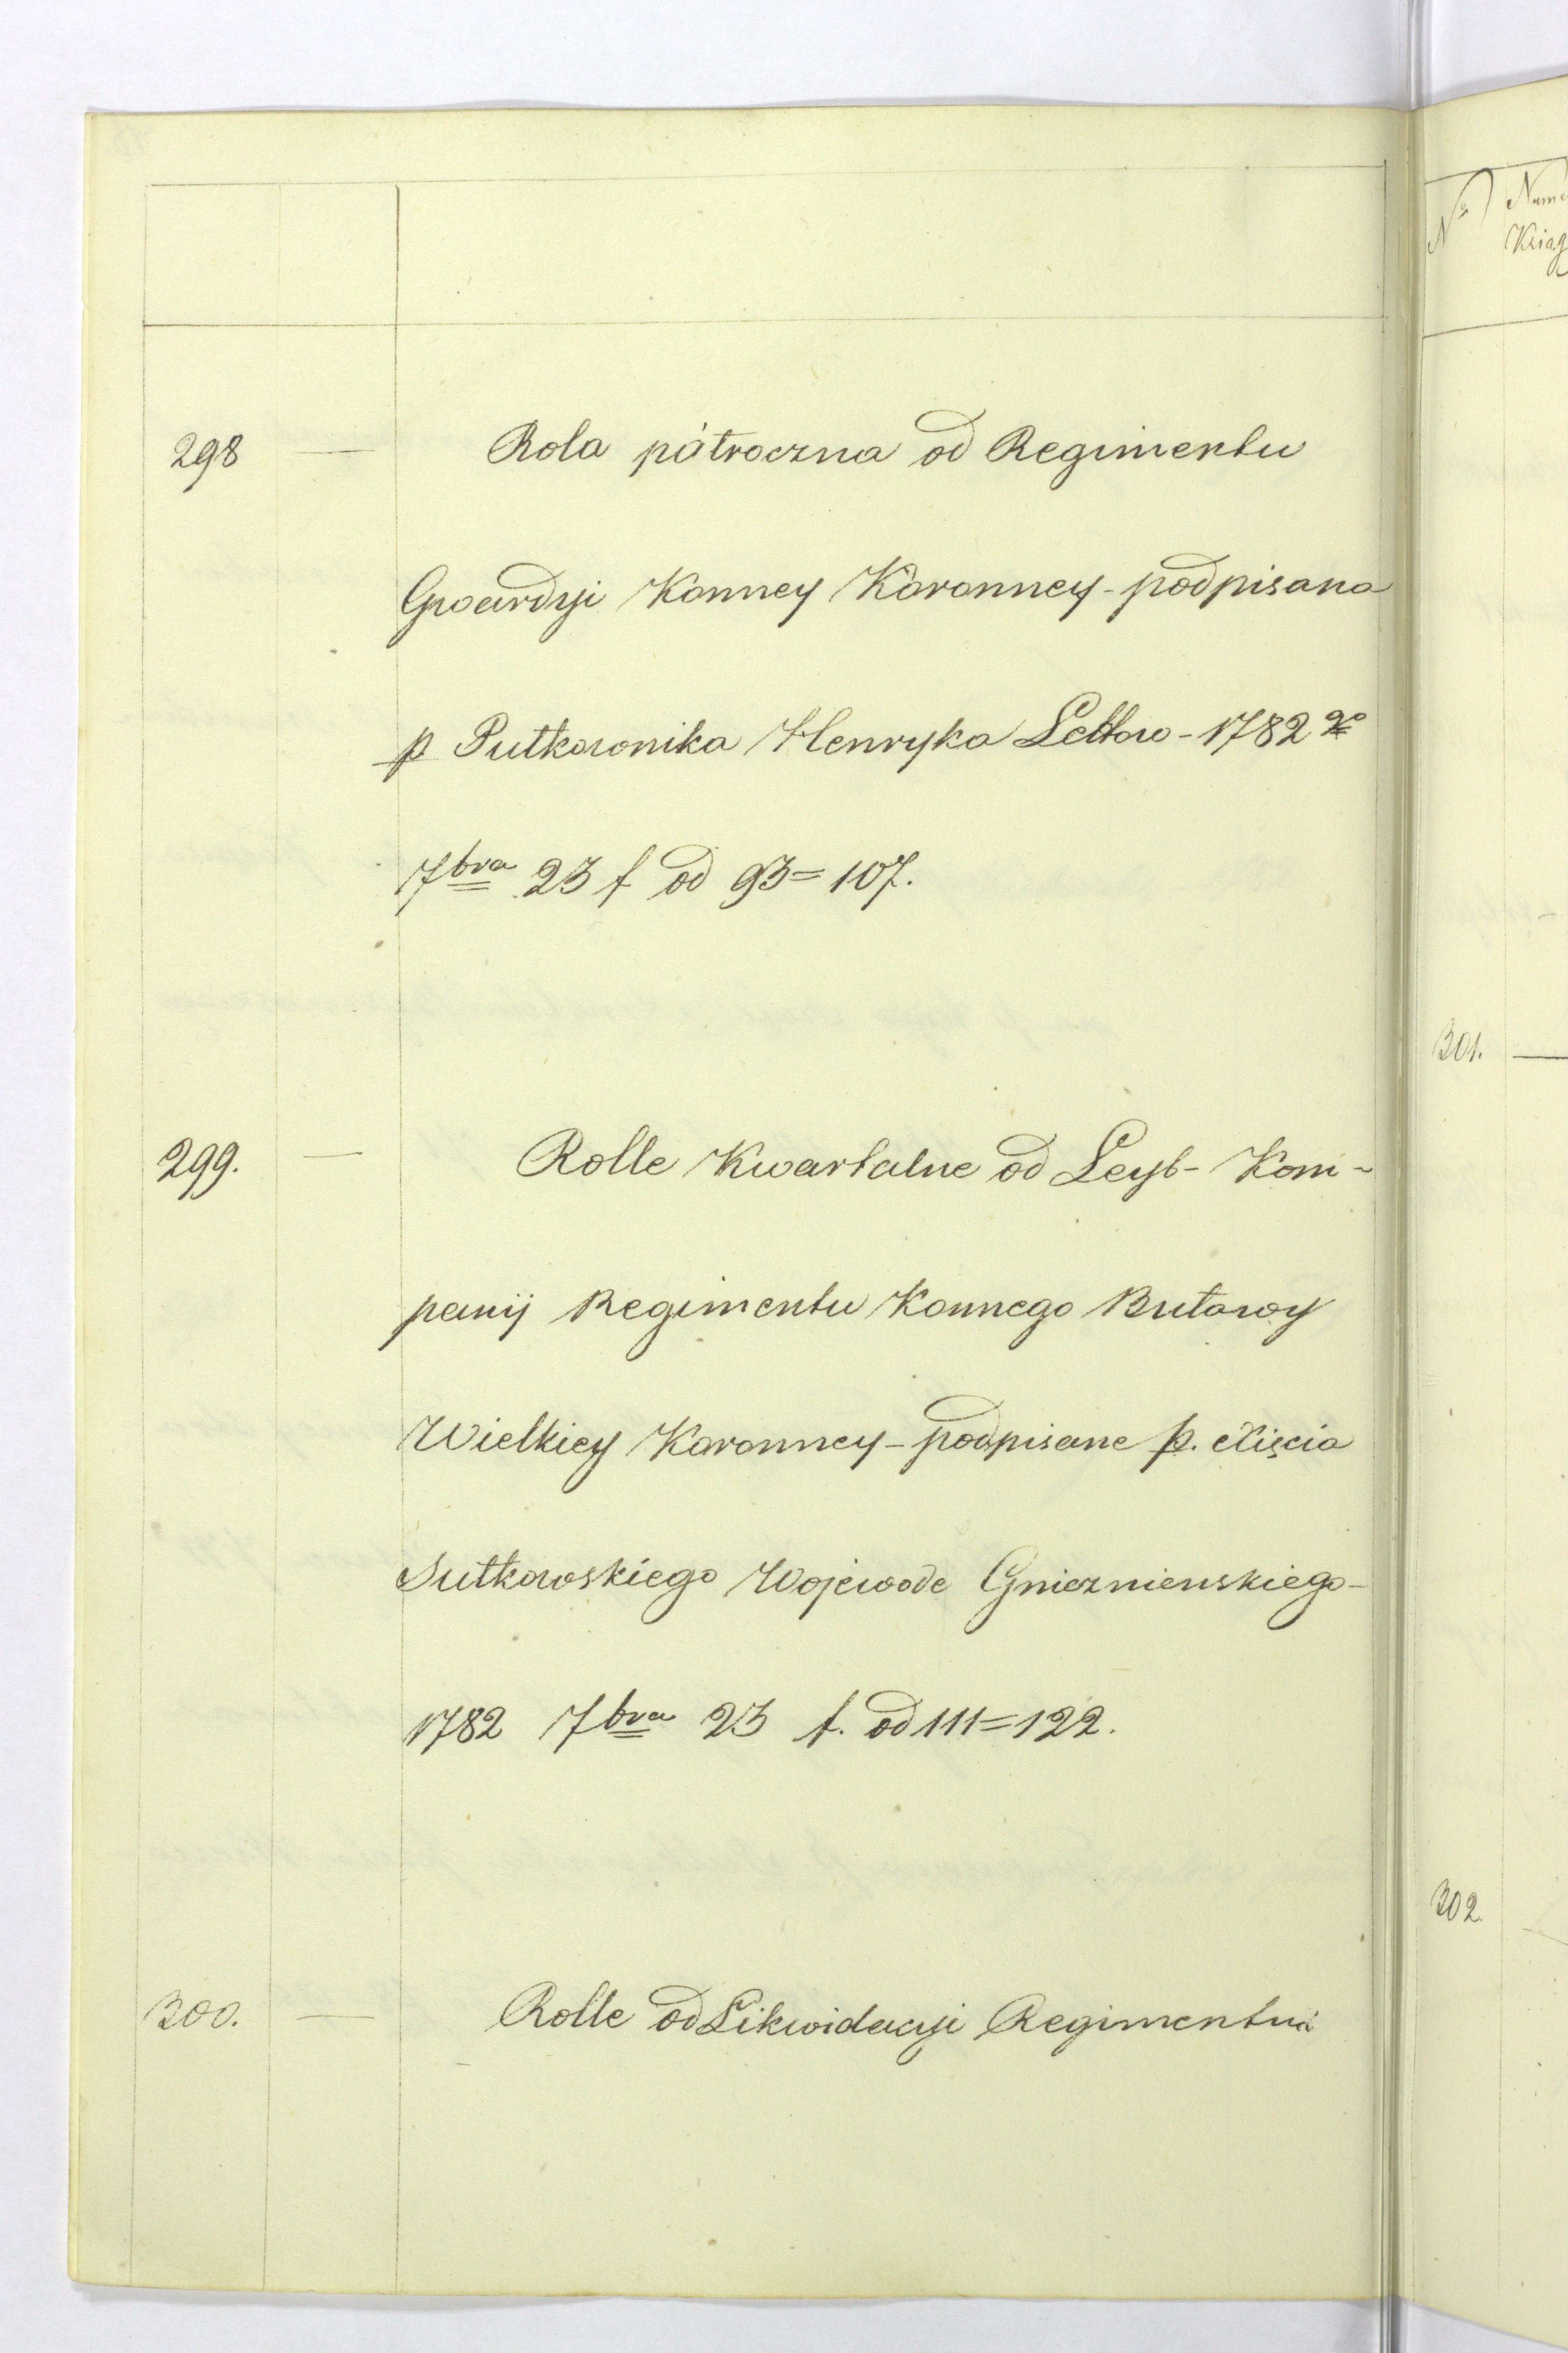 298 — Rola pátroczna od Regimentu
Gwardyi Konney Koronney - podpisana
p Pułkownika Henryka Lettow - 1782 go
7bra 23 f od 93 = 107.
299. — Rolle Kwartalne od Leyb- Kom-
panij Regimentu Konnego Buławy
Wielkiey Koronney - podpisane p. Xięcia
Sułkowskiego Wojewode Gnieznienskiego -
1782 7bra 23 f. od 111 = 122.
300. — Rolle od Likwidacyi Regimentu
No Nume
Książ
301. —
302.